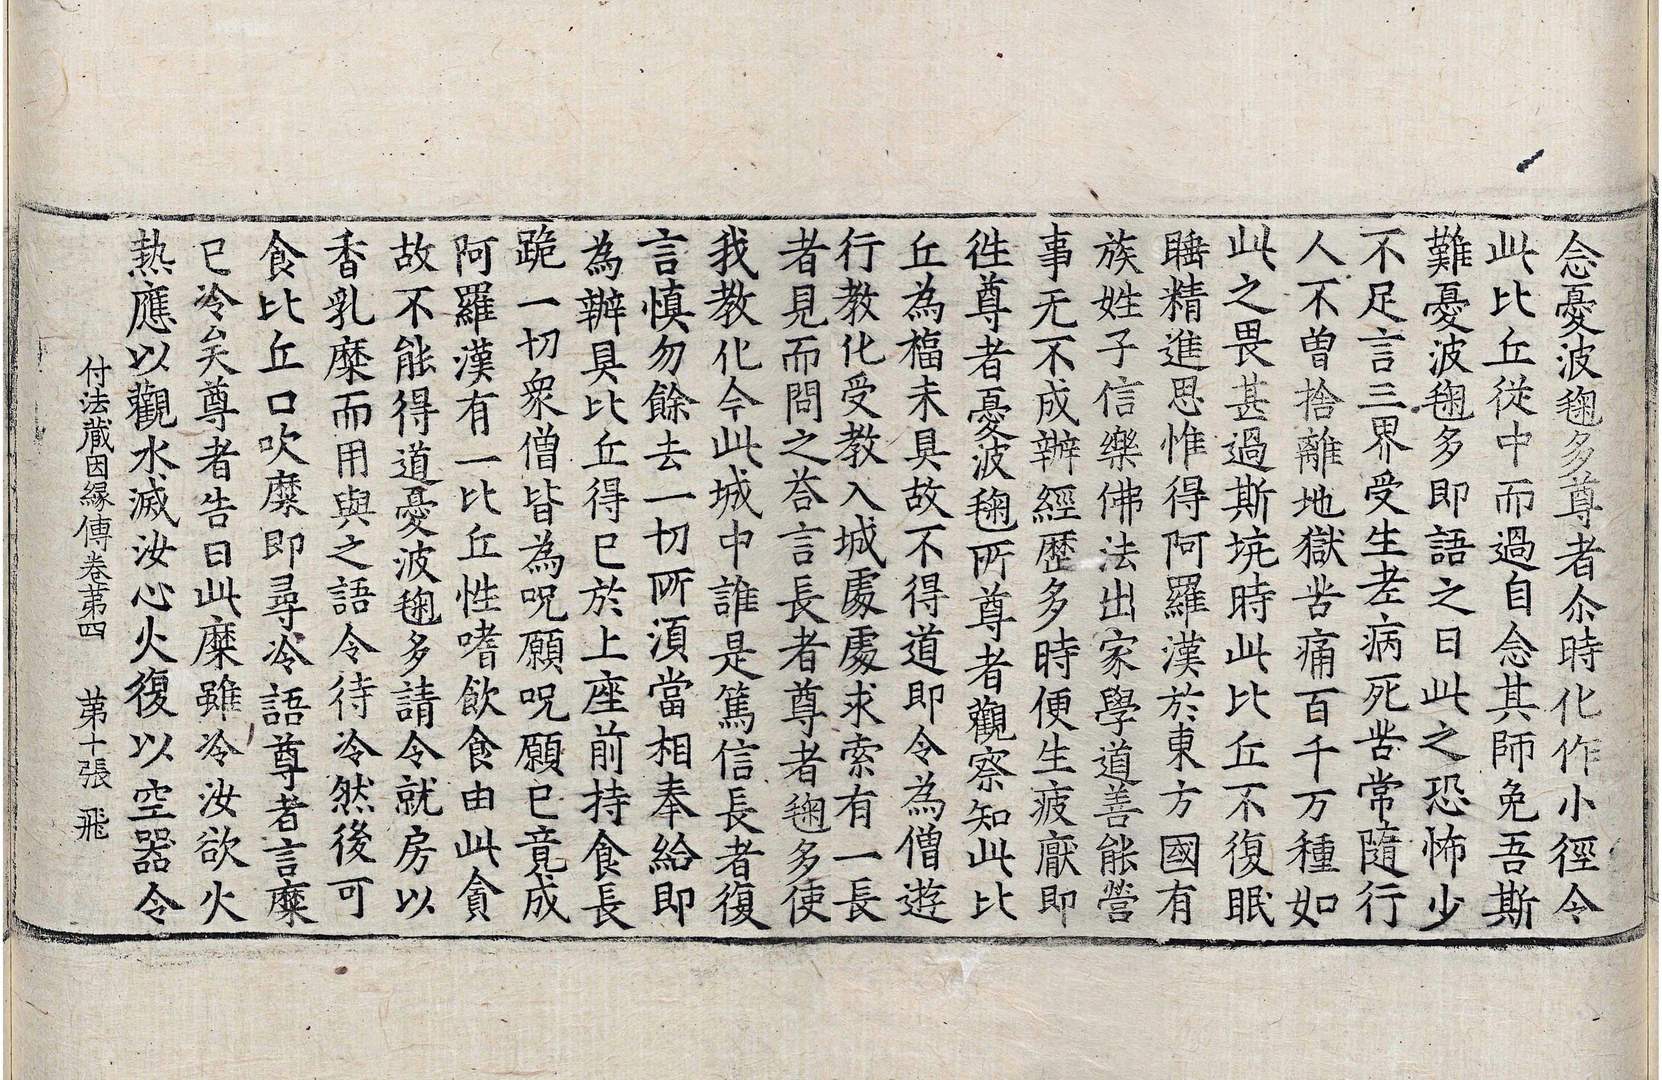 念憂波毱多尊者尒時化作小徑令
此比丘從中而過自念其師免吾斯
難憂波毱多即語之曰此之恐怖少
不足言三界受生老病死苦常隨行
人不曾捨離地獄苦痛百千万種如
此之畏甚過斯坑時此比丘不復眠
睡精進思惟得阿羅漢於東方國有
族姓子信樂佛法出家學道善能營
事无不成辦經歷多時便生疲猒即
徃尊者憂波毱所尊者觀察知此比
丘為福未具故不得道即令為僧遊
行教化受教入城處處求索有一長
者見而問之荅言長者尊者毱多使
我教化今此城中誰是篤信長者復
言慎勿餘去一切所須當相奉給即
為辦具比丘得已於上座前持食長
跪一切衆僧皆為呪願呪願已竟成
阿羅漢有一比丘性嗜飲食由此貪
故不能得道憂波毱多請令就房以
香乳糜而用與之語令待冷然後可
食比丘口吹糜即尋冷語尊者言糜
已冷矣尊者告曰此糜雖冷汝欲火
熱應以觀水滅汝心火復以空器令
付法藏因緣傳卷苐四 苐十張 飛